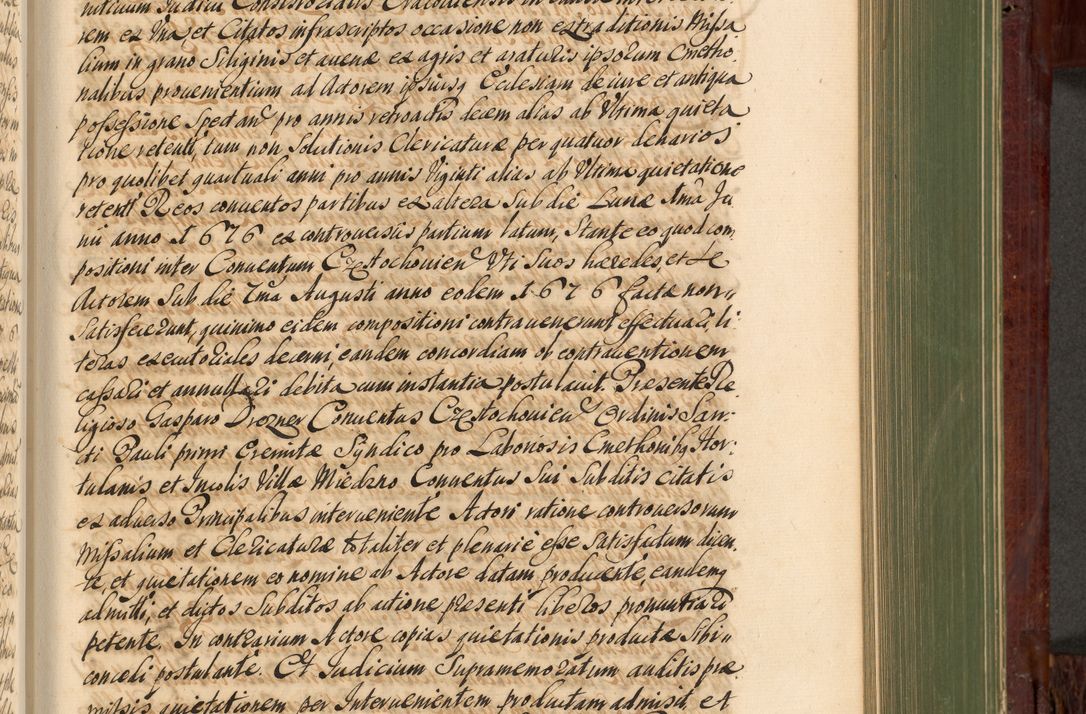 rem ex Vna et Citatos infrascriptos occasione non extraditionis Missa
lium in grano Siliginis et auenæ ex agris et araturis ipsorum Cmetho:
nalibus prouenientium ad Actorem ipsiusq Ecclesiam de iure et antiqua
possessione Spectan pro annis retroactis decem alias ab Vltima quieta
tione retenti, tum non Solutionis Clericaturæ per quatuor denarios
pro quolibet quartuali anni pro annis Viginti alias ab Vltima quietatione
retenti Reos conuentos partibus ex altera Sub die Lunæ Ima Ju
nii anno 1676 ex controuersiis partium latum, Stante eo quod com
positioni inter Conuentum Częstochouien Vti Suos hæredes, et Se
Actorem Sub die 2ma Augusti anno eodem 1676 factæ non
Satisfecerunt, quinimo eidem compositioni contrauenerunt effectuari, li
teras executoriales decerni, eandem concordiam ob contrauentionem
cassari et annullari debita cum instantia postulauit. Præsente Re
ligioso Gasparo Drozner Conuentus Częstochouien Ordinis San
cti Pauli primi Eremitæ Syndico pro Laboriosis Cmethonibq Hor
tulanis et Incolis Villæ Miedzno Conuentus Sui Subditis citatis
ex aduerso Principalibus interueniente Actori ratione controuersorum
Missalium et Clericaturæ totaliter et plenarie esse Satisfactum dicen
te, et quietationem eo nomine ab Actore datam producente, eandemq
admitti, et dictos Subditos ab actione præsenti liberos pronuntiari
petente. In contrarium Actore copias quietationis productæ Sibi
concedi postulante. Et Judicium Supramemoratum auditis præ
missis quietationem per Interuenientem productam admisit et